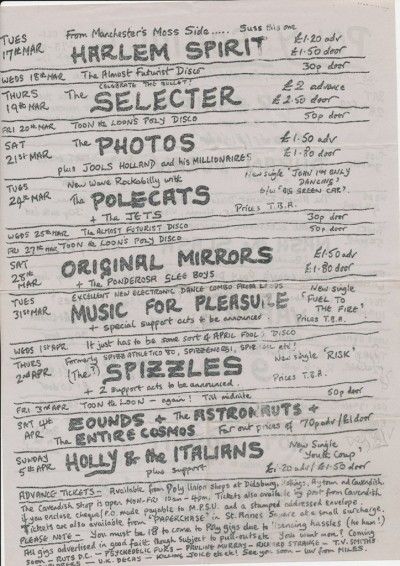 From Manchester's Moss Side..... Suss this one
TUES 17TH MAR HARLEM SPIRIT £1·20 adv £1·50 door
WEDS 18TH MAR The Almost Futurist Disco 30p door
CELEBRATE THE BULLET!
THURS 19TH MAR The SELECTER £2 advance £2·50 door
FRI 20TH MAR TOON the LOON'S POLY DISCO 50p door
SAT 21ST MAR The PHOTOS £1·50 adv £1·80 door
plus JOOLS HOLLAND and his MILLIONAIRES
New Wave Rockabilly with New single 'JOHN I'M ONLY DANCING'
TUES 24TH MAR The POLECATS b/w 'BIG GREEN CAR'
+ The JETS Prices T.B.A.
WEDS 25TH MAR The ALMOST FUTURIST DISCO 30p door
FRI 27TH MAR TOON the LOON'S POLY DISCO 50p door
SAT 28TH MAR ORIGINAL MIRRORS £1·50 adv £1·80 door
+ The PONDEROSA GLEE BOYS
EXCELLENT NEW ELECTRONIC DANCE COMBO FROM LEEDS
TUES 31ST MAR MUSIC FOR PLEASURE New single 'FUEL TO THE FIRE'
+ special support acts to be announced Prices T.B.A.
WEDS 1ST APR It just has to be some sort of APRIL FOOL'S DISCO
Formerly SPIZZ ATHLETICO 80, SPIZZENERGI, SPIZZOIL etc!
THURS 2ND APR (The?) SPIZZLES New single 'RISK'
+ 2 support acts to be announced Prices T.B.A.
FRI 3RD APR TOON the LOON - again! Till midnite 50p door
SAT 4TH APR ZOUNDS + The ASTRONAUTS +
The ENTIRE COSMOS Far out prices of 70p adv/£1 door
SUNDAY 5TH APR HOLLY & the ITALIANS New Single 'Youth Coup'
plus support £1·20 adv/£1·50 door
ADVANCE TICKETS - Available from Poly Union shops at Didsbury, Aytoun and Cavendish
The Cavendish Shop is open Mon-Fri 10am-4pm. Tickets also available by post from Cavendish
if you enclose cheque/P.O. made payable to M.P.S.U. and a stamped addressed envelope
Tickets are also available from 'PAPERCHASE' in St. Annes Square at a small surcharge.
PLEASE NOTE - You must be 18 to come to Poly gigs due to licencing hassles (ho hum!)
All gigs advertised in good faith though subject to pull-outs etc. You want more? Coming
soon - RUTS D.C. - PSYCHEDELIC FURS - PAULINE MURRAY - RICHARD STRANGE - T.V. SMITHS
- U.K. DECAY - KILLING JOKE etc etc! See you soon - luv from MILES.